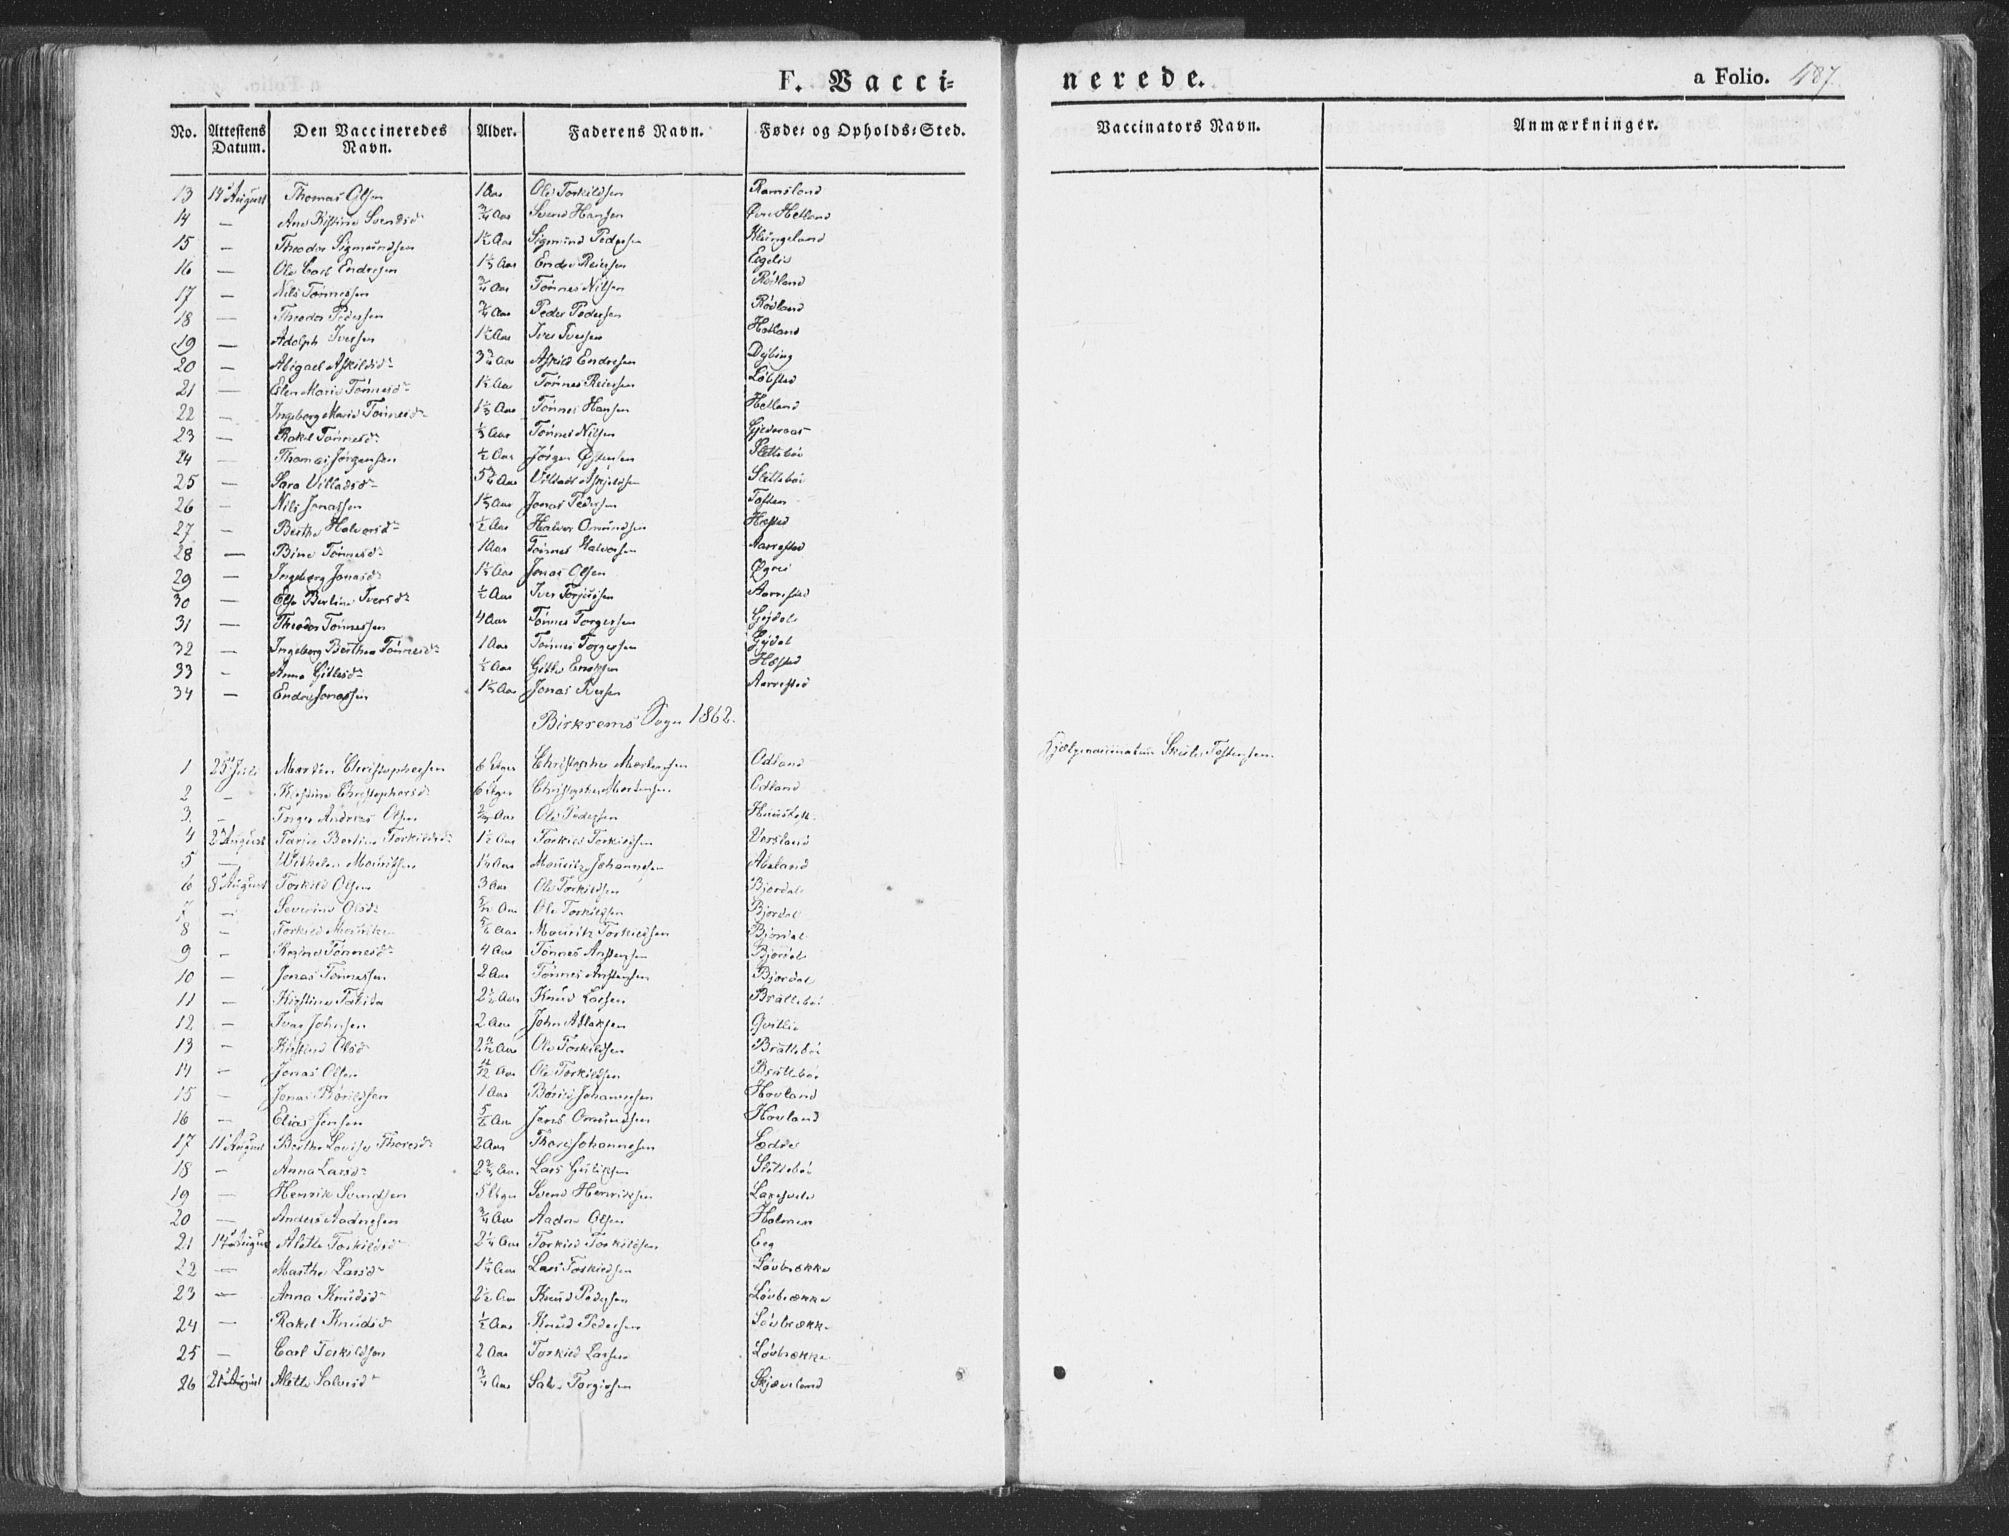 F. Vacci=
nerede.
a Folio. 487.
No. Attestens Datum. Den Vaccineredes Navn. Alder. Faderens Navn. Føde= og Opholds=Sted. Vaccinators Navn. Anmærkninger.
13 14 August Thomas Olsen 1 Aar Ole Torkildsen Ramsland
14 — Ane Kistine Svendsd 3/4 Aar Svend Hansen Øvre Hetland
15 — Theodor Sigmundsen 1½ Aar Sigmund Pedersen Klungeland
16 — Ole Carl Endresen Aar Endre Reiersen Eegelie
17 — Nils Tønnessen 3/4 Aar Tønnes Nilsen Rødland
18 — Theodor Pedersen 3/4 Aar Peder Pedersen Rødland
19 — Adolph Iversen Aar Iver Iversen Hetland
20 — Abigael Askildsd 3 Aar Askild Endresen Dybing
21 — Elen Marie Tønnesd Aar Tønnes Reiersen Løbsted
22 — Ingeborg Marie Tønnesd Aar Tønnes Hansen Hetland
23 — Rakel Tønnesd Aar Tønnes Nilsen Gjedraas
24 — Thomas Jørgensen ½ Aar Jørgen Østensen Slettebøe
25 — Sara Villadsd 5 Aar Villads Askjeldsen Slettebøe
26 — Nils Jonassen Aar Jonas Pedersen Toften
27 — Berthe Halvorsd ½ Aar Halvor Omundsen Hæsted
28 — Bine Tønnesd 1 Aar Tønnes Halvorsen Aarrestad
29 — Ingeborg Jonasd Aar Jonas Olsen Øgrei
30 — Else Bertine Iversd ½ Aar Iver Torjusen Aarrestad
31 — Theodor Tønnessen 4 Aar Tønnes Torgersen Gydal
32 — Ingeborg Berthea Tønnesd 1 Aar Tønnes Torgersen Gydal
33 — Anna Gitlesd ½ Aar Gitle Eriksen Hæsted
34 — Endre Jonassen Aar Jonas Iversen Aarrestad
Birkrems Sogn 1862.
1 25 Juli Morten Christophersen 6 Uger Christopher Mortensen Odland Hjælpevaccinatør Skule Tostensen
2 — Kistine Christophersd 6 Uger Christopher Mortensen Odland
3 — Torger Andreas Olsen Aar Ole Pedersen
4 2 August Bertine Torkildsd 1½ Aar Torkild Torkildsen Vassland
5 — Wilhelm Mouritsen Aar Mouritz Johannesen Aaseland
6 8 August Torkild Olsen 3 Aar Ole Torkildsen Bjordal
7 — Severine Olsd Aar Ole Torkildsen Bjordal
8 — Torkild Mouritzen Aar Mouritz Torkildsen Bjordal
9 — Tønnesd 4 Aar Tønnes Anstensen Bjordal
10 — Jonas Tønnessen 2 Aar Tønnes Anstensen Bjordal
11 — Kistine Tobida 2½ Aar Knud Larsen Brattebøe
12 — Ivar Johnsen 2 Aar John Aslaksen Qvitlie
13 — Olsd Aar Ole Torkildsen Brattebøe
14 — Jonas Olsen Aar Ole Torkildsen Brattebøe
15 — Jonas Børildsen 1 Aar Børild Johannesen Hovland
16 — Elias Jensen Aar Jens Omundsen Hovland
17 11 August Berthe Lovise Thoresd 2 Aar Thore Johannesen Sædde
18 — Anna Larsd Aar Lars Slettebøe
19 — Henrik Svendsen 5 Uger Svend Henriksen Laxesvele
20 — Anders Aadnesen 3/4 Aar Aadne Olsen Holmen
21 14 August Alette Torkildsd Aar Torkild Torkildsen Eeg
22 — Marthe Larsd Aar Lars Torkildsen Løvbrække
23 — Anna Knudsd 2½ Aar Knud Pedersen Løvbrække
24 — Rakel Knudsd ½ Aar Knud Pedersen Løvbrække
25 — Carl Torkildsen 2 Aar Torkild Larsen Løvbrække
26 21 August Alette Salvesd 3/4 Aar Salve Torgersen Skjæveland